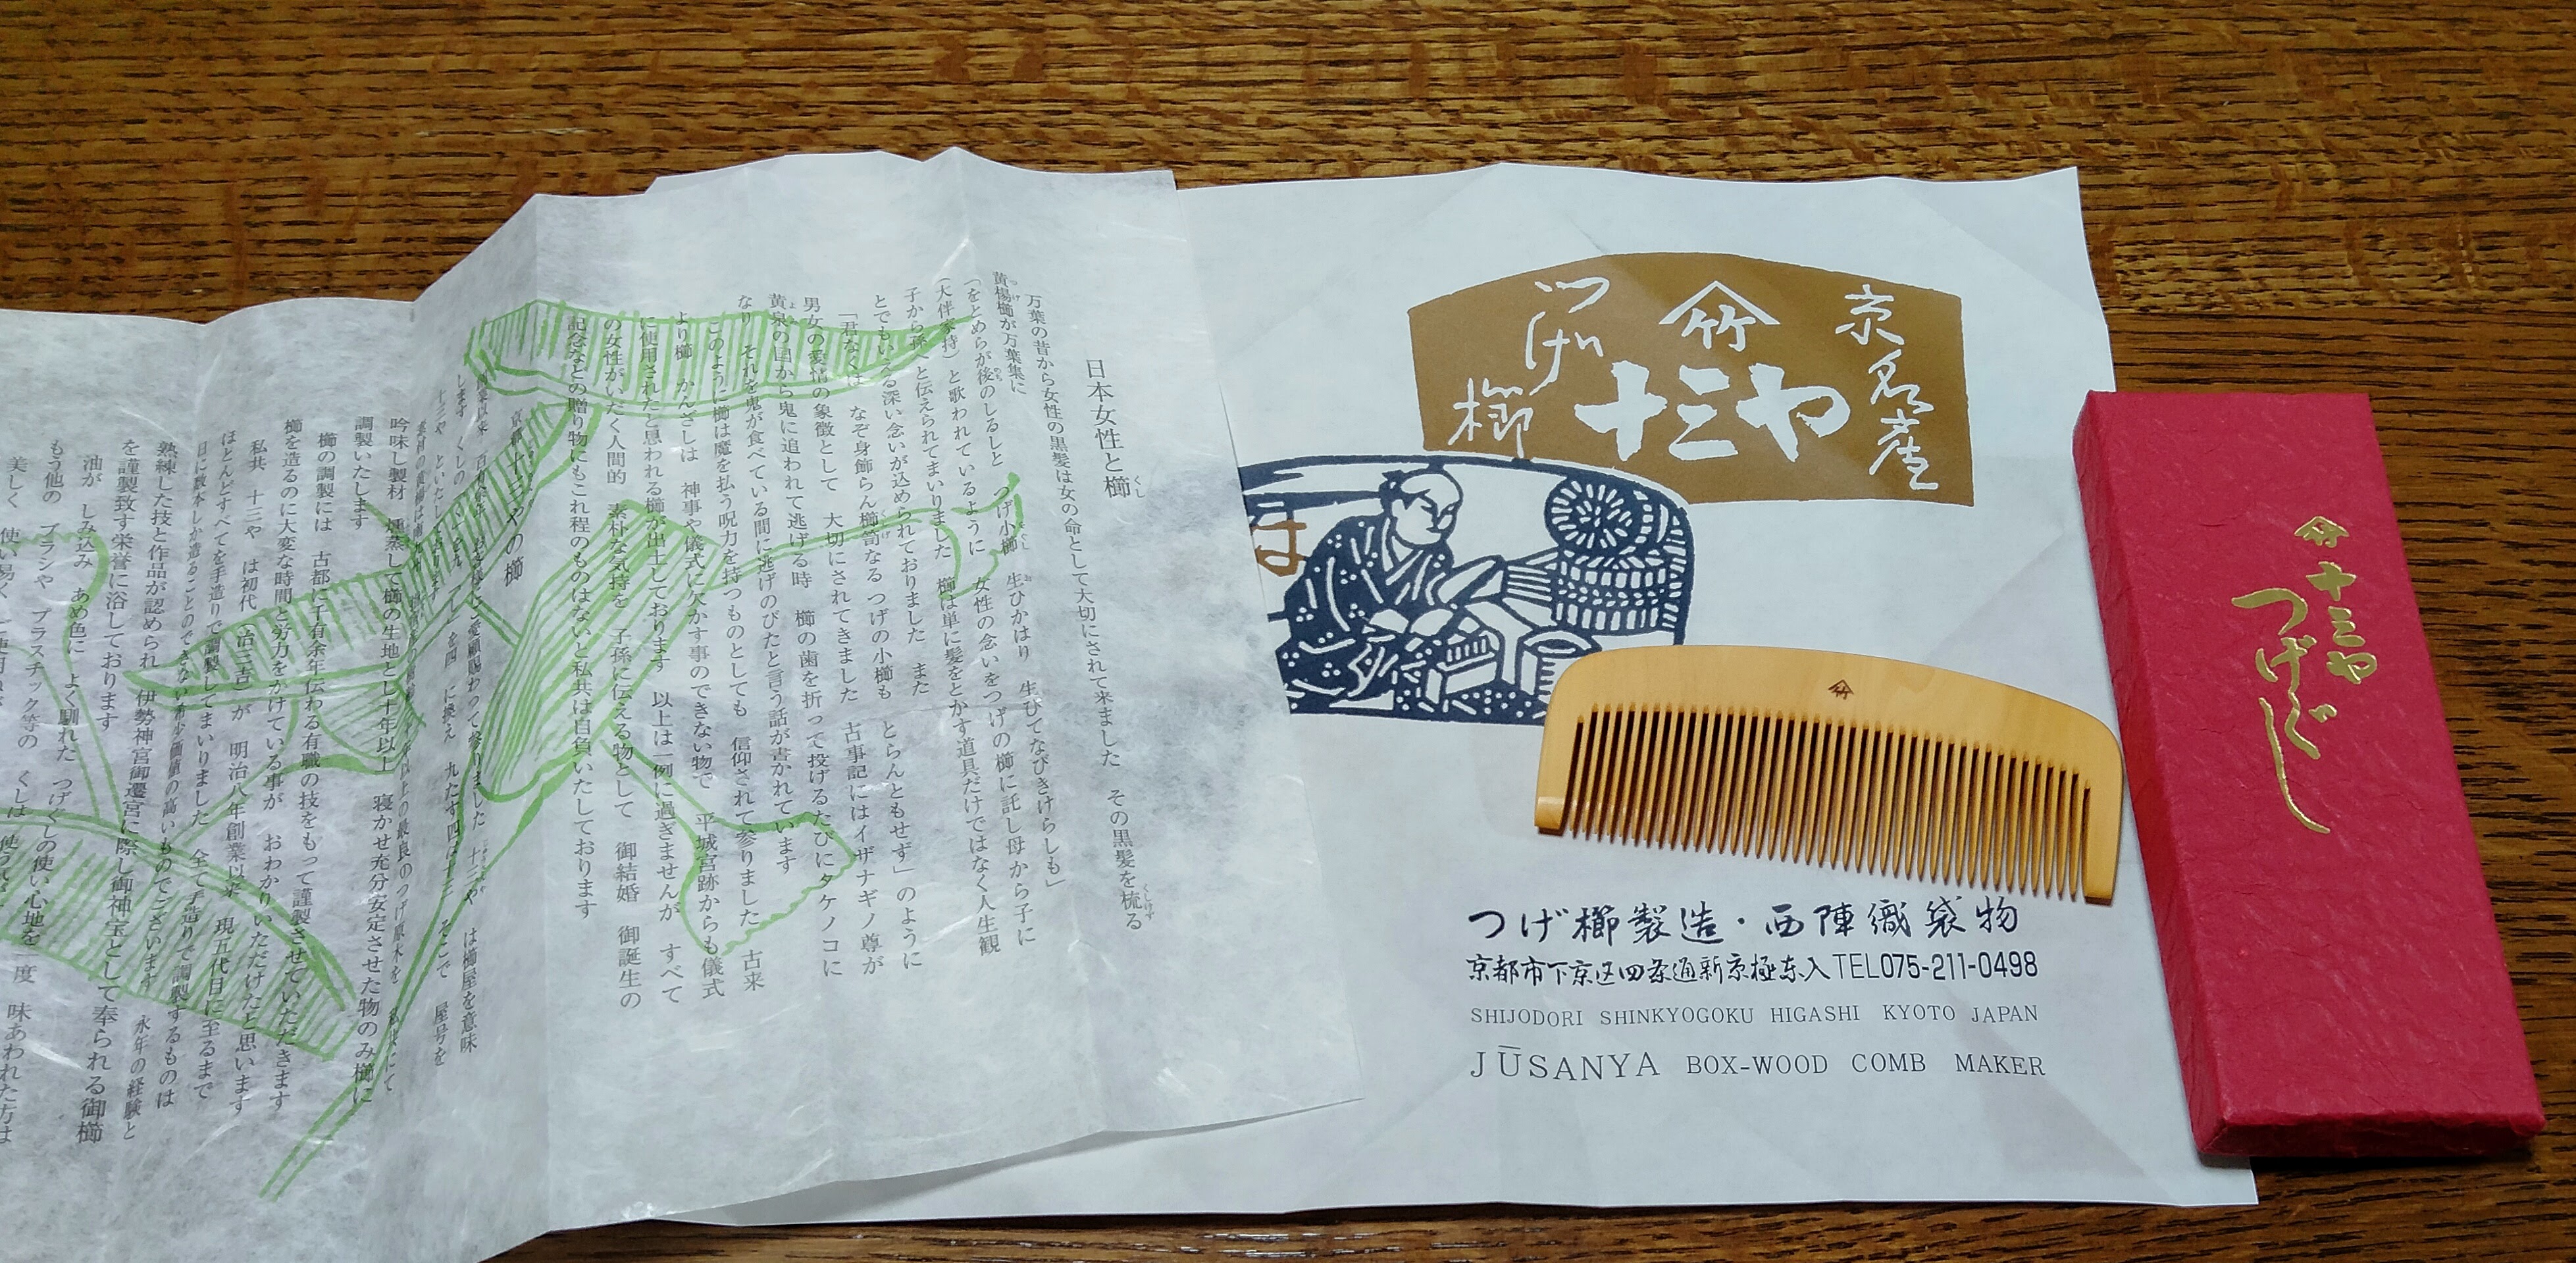 日本女性と櫛
万葉の昔から女性の黒髪は女の命として大切にされて来ました　その黒髪を梳る
黄楊櫛が万葉集に
「をとめらが後のしるしと　つげ小櫛　生ひかはり　生ひてなびきけらしも」
（大伴家持）と歌われているように　女性の念いをつげの櫛に託し母から子に
子から孫へと伝えられてまいりました　櫛は単に髪をとかす道具だけではなく人生観
とでもいえる深い念いが込められておりました　また
「君なくは　なぞ身飾らん櫛笥なる　つげの小櫛も　とらんともせず」のように
男女の愛情の象徴として　大切にされてきました　古事記にはイザナギノ尊が
黄泉の国から鬼に追われて逃げる時　櫛の歯を折って投げるたびにタケノコに
なり　それを鬼が食べている間に逃げのびたと言う話が書かれています
このように櫛は魔を払う呪力を持つものとしても　信仰されて参りました　古来
より櫛　かんざしは　神事や儀式に欠かす事のできない物で　平城宮跡からも儀式
に使用されたと思われる櫛が出土しております　以上は一例に過ぎませんが　すべて
の女性がいだく人間的　素朴な気持を　子孫に伝える物として　御結婚　御誕生の
記念などの贈り物にもこれ程のものはないと私共は自負いたしております
京都　十三やの櫛
愛顧賜わって参りました　十三や　は櫛屋を意味
します　くしの
を四　に換え　九たす四は十三　そこで　屋号を
十三や　といたしております
吟味し製材　燻蒸して櫛の生地として十年以上　寝かせ充分安定させた物のみ櫛に
調製いたします
櫛の調製には　古都に千有余年伝わる有職の技をもって謹製させていただきます
櫛を造るのに大変な時間と労力をかけている事が　おわかりいただけたと思います
私共　十三や　は初代（治三吉）が　明治八年創業以来　現五代目に至るまで
ほとんどすべてを手造りで調製してまいりました　全て手造りで調製するものは
日に数本しか造ることのできない希少価値の高いものでございます　永年の経験と
熟練した技と作品が認められ　伊勢神宮御遷宮に際し御神宝として奉られる御櫛
を謹製致す栄誉に浴しております
油が　しみ込み　あめ色に　よく馴れた　つげぐしの使い心地を一度　味あわれた方は
もう他の　ブラシや　プラスチック等の　くしは
美しく　使い易く
京名産
竹
十三や
つげ
櫛
は
竹
つげ櫛製造・西陣織袋物
京都市下京区四条通新京極東入TEL075-211-0498
SHIJODORI SHINKYOGOKU HIGASHI KYOTO JAPAN
JŪSANYA BOX-WOOD COMB MAKER
竹
十三や
つげぐし